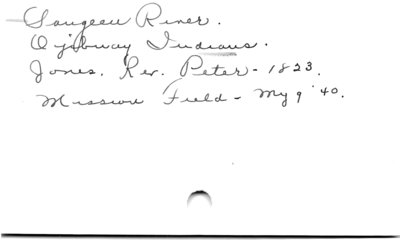 Saugeen River.
Ojibway Indians.
Jones. Rev. Peter - 1823.
Mission Field - My 9 '40.